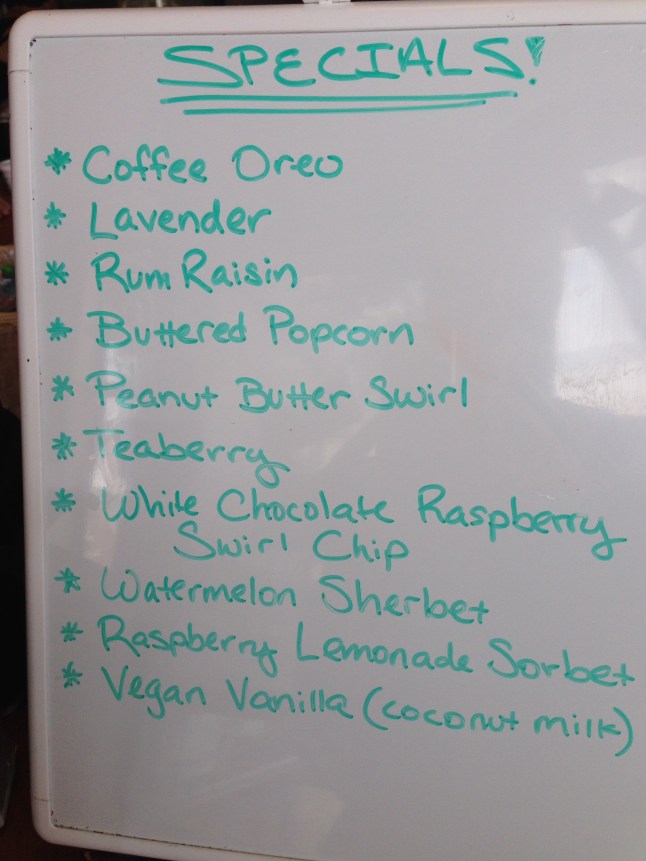 SPECIALS!
* Coffee Oreo
* Lavender
* Rum Raisin
* Buttered Popcorn
* Peanut Butter Swirl
* Teaberry
* White Chocolate Raspberry
Swirl Chip
* Watermelon Sherbet
* Raspberry Lemonade Sorbet
* Vegan Vanilla (coconut milk)